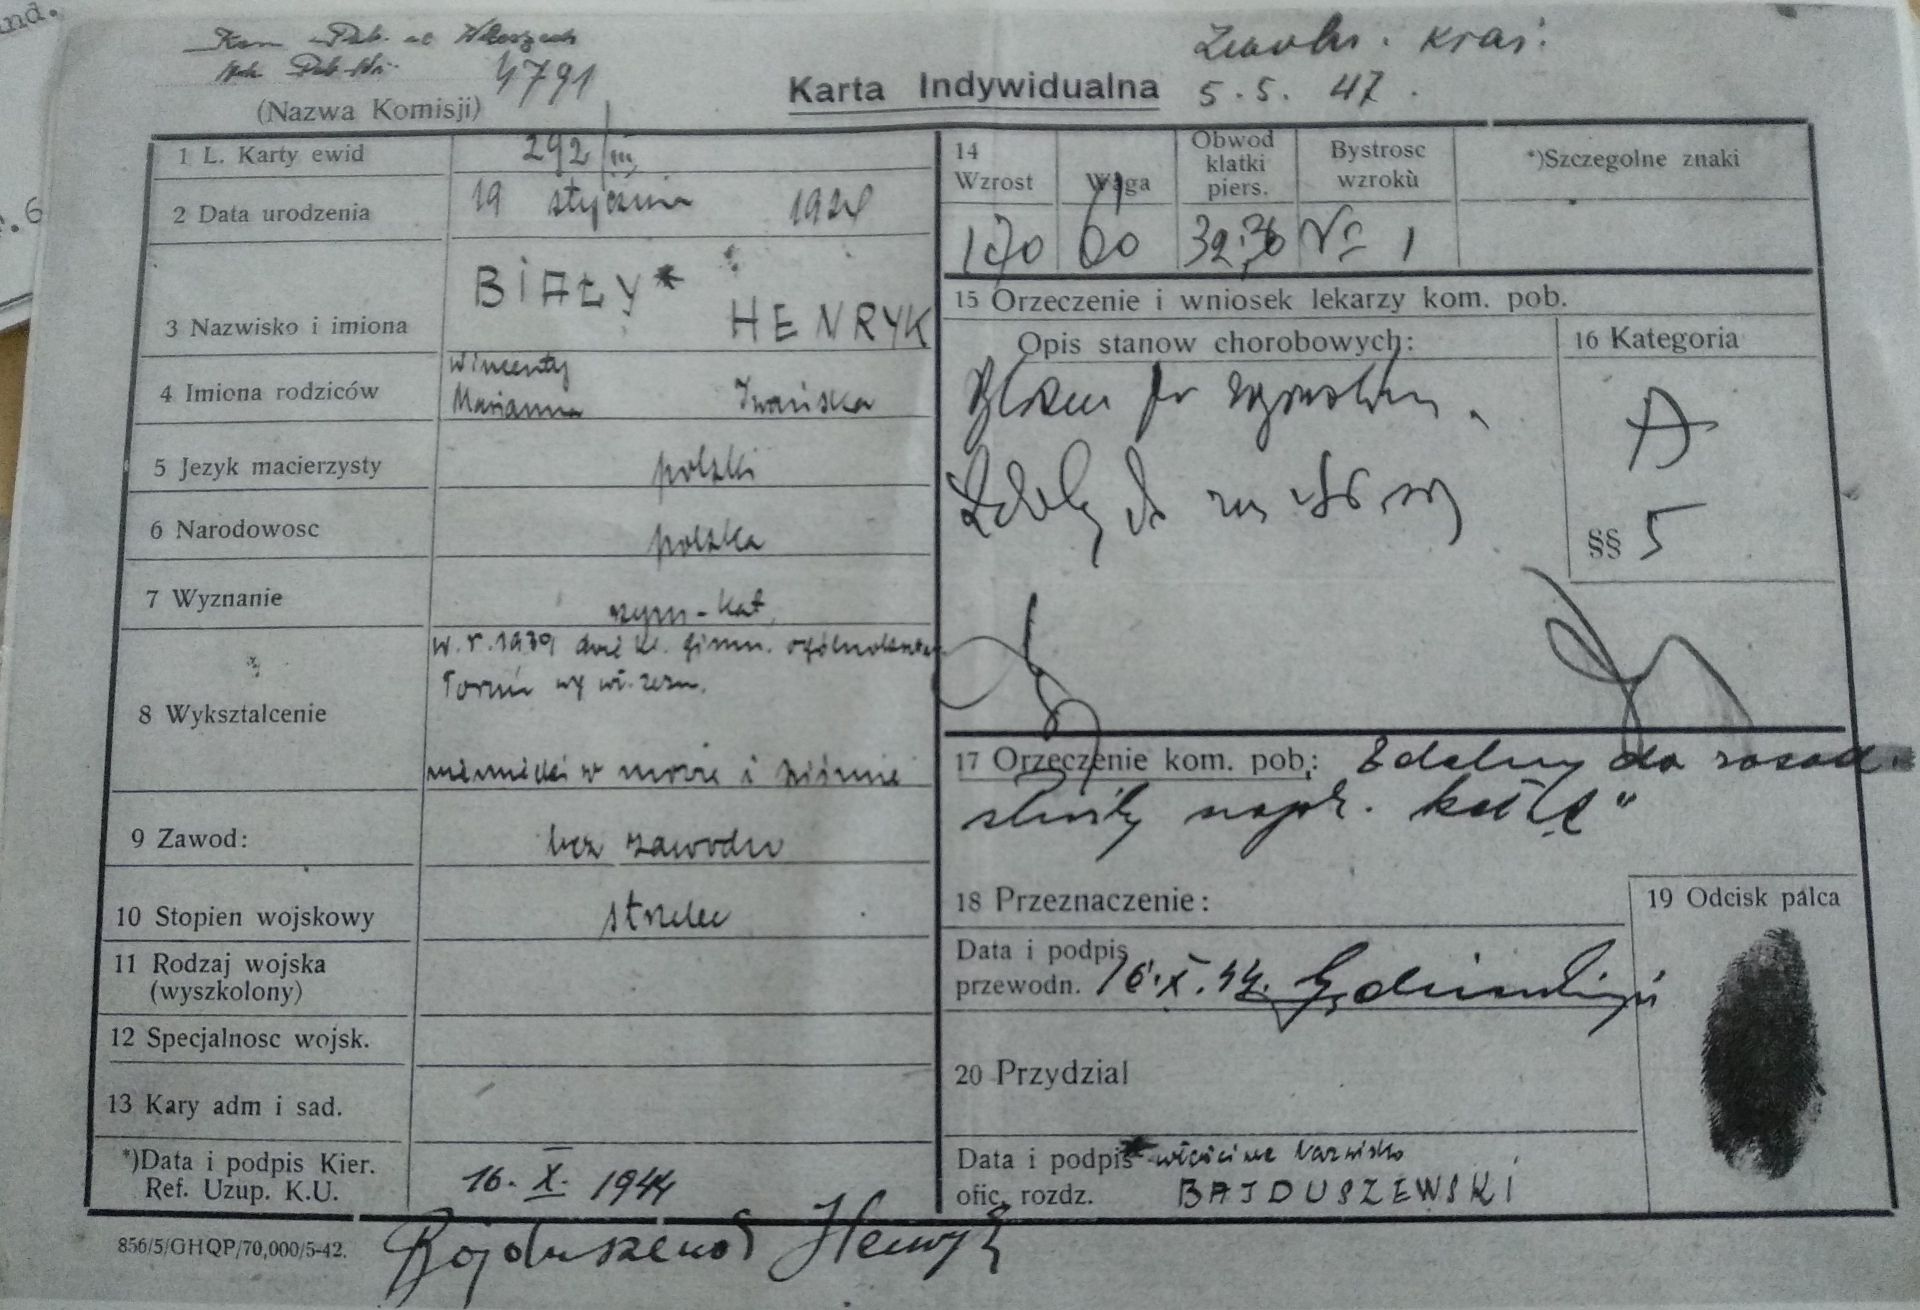 and.
.6
Kom Pob. we Włoszech
4791
(Nazwa Komisji)
Karta Indywidualna
kraj.
5.5.47.
1 L. Karty ewid 292/III
2 Data urodzenia 19 stycznia 192
3 Nazwisko i imiona BIAŁY* HENRYK
4 Imiona rodziców Wincenty
Marianna Iwańska
5 Jezyk macierzysty polski
6 Narodowosc polska
7 Wyznanie rzym-kat.
8 Wyksztalcenie w.r.1939 dwie kl. gimn.
Toruń
niemiecki w mowie i piśmie
9 Zawod: bez zawodu
10 Stopien wojskowy strzelec
11 Rodzaj wojska
(wyszkolony)
12 Specjalnosc wojsk.
13 Kary adm i sad.
*)Data i podpis Kier.
Ref. Uzup. K.U. 16. X. 1944
856/5/GHQP/70,000/5-42.
Henryk
14
Wzrost Waga Obwod klatki piers. Bystrosc wzrokù *)Szczegolne znaki
170 60 No 1
15 Orzeczenie i wniosek lekarzy kom. pob.
Opis stanow chorobowych:
16 Kategoria
A
§§ 5
17 Orzeczenie kom. pob.: Zdolny do zasad.
służby kat.
18 Przeznaczenie:
19 Odcisk palca
Data i podpis
przewodn. 16.X.44.
20 Przydzial
Data i podpis * właściwe Nazwisko
ofic. rozdz. BAJDUSZEWSKI